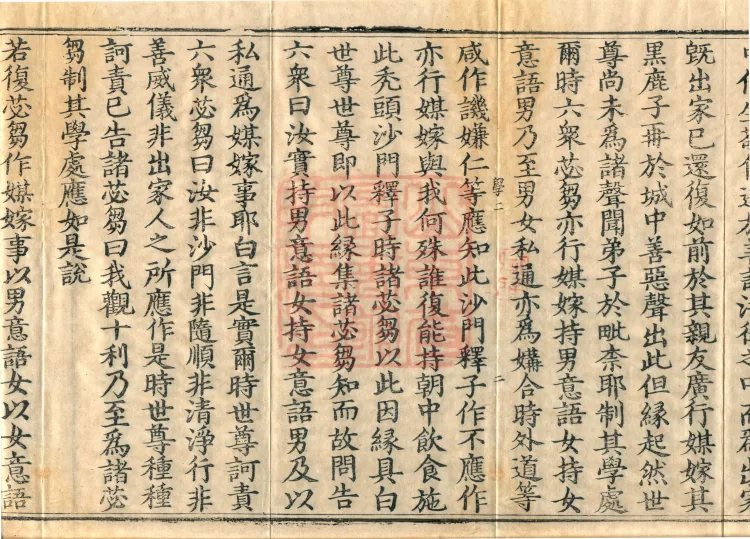 既出家已還復如前於其親友廣行媒嫁其
黑鹿子毋於城中善惡聲出此但緣起然世
尊尚未爲諸聲聞弟子於毗柰耶制其學處
爾時六衆苾芻亦行媒嫁持男意語女持女
意語男乃至男女私通亦爲媾合時外道等
學二
二
咸作譏嫌仁等應知此沙門釋子作不應作
亦行媒嫁與我何殊誰復能持朝中飲食施
此禿頭沙門釋子時諸苾芻以此因緣具白
世尊世尊即以此緣集諸苾芻知而故問告
六衆曰汝實持男意語女持女意語男及以
私通爲媒嫁事耶白言是實爾時世尊訶責
六衆苾芻曰汝非沙門非隨順非清淨行非
善威儀非出家人之所應作是時世尊種種
訶責已告諸苾芻曰我觀十利乃至爲諸苾
芻制其學處應如是說
若復苾芻作媒嫁事以男意語女以女意語